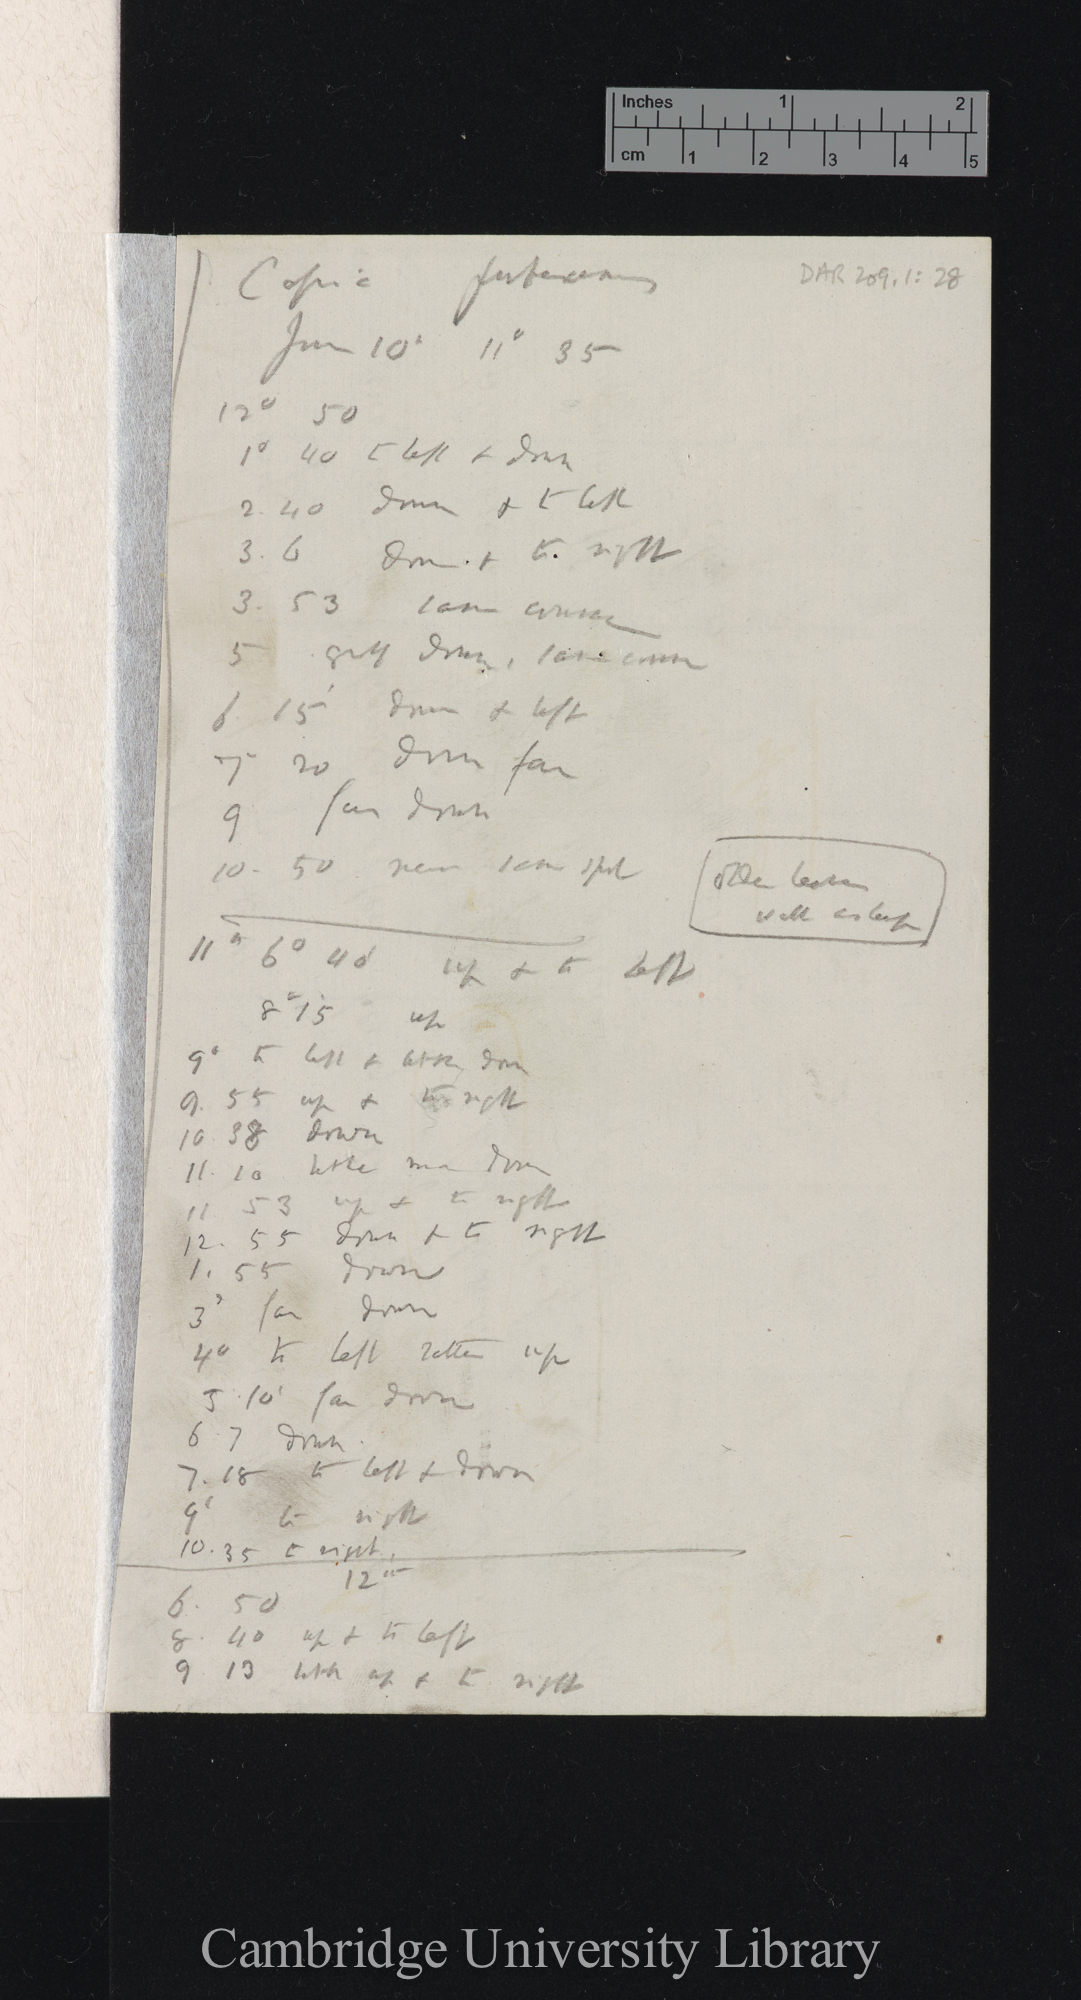 Inches 1 2
cm 1 2 3 4 5
DAR 209.1: 28
Cassia pubescens
June 10th 11° 35
12° 50
1° 40 to left & down
2. 40 down & to left
3. 6 down & to right
3. 53 same course
5 down, same course
6 15' down & left
7 20 down far
9 far down
10. 50 near same spot
older leaves
well asleep
11th 6° 40' up & to left
8° 15 up
9° to left & little down
9. 55 up & to right
10 38 down
11. 10 little more down
11 53 up & to right
12. 55 down & to right
1. 55 down
3° far down
4° to left rather up
5 10' far down
6 7 down
7. 18 to left & down
9° to right
10. 35 to right.
12th
6. 50
8. 40 up & to left
9 13 little up & to right
Cambridge University Library